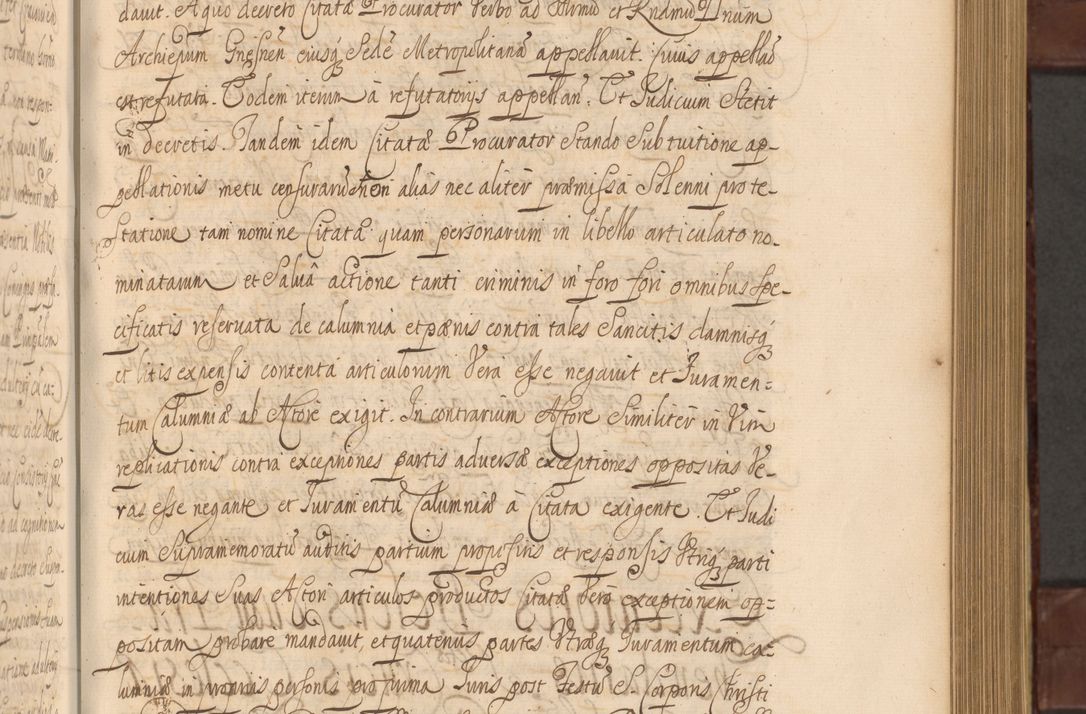 davit. A quo decreto Citatæ Procurator Verbo ad Illrmū et Rndmū Dnum
Archiepum Gnesnen eiusq Sedē Metropolitanā appellavit. cuius appellaō
est refutata. Eodem iterum à refutatorijs appellan. Et Iudicium Stetit
in decretis. Tandem idem Citatæ Procurator Stando Sub tuitione ap-
pellationis metu censurarū non alias nec aliter præmissa Solenni prote-
statione tam nomine Citatæ quam personarum in libello articulato no-
minatarum et Salvâ actione tanti criminis in foro fori omnibus spe-
cificatis reservata de calumnia et pœnis contra tales Sancitis damnisq
et litis expensis contenta articulorum Vera esse negavit et Iuramen-
tum Calumniæ ab Actore exigit. In contrarium Actore Similiter in Vim
replicationis contra exceptiones partis adversæ exceptiones oppositas Ve-
ras esse negante et Iuramentū Calumniæ à Citata exigente. Et Iudi
cium Supramemoratū auditis partium propositis et responsis Utriq parti
intentiones Suas Actori articulos productos Citatæ Vero exceptionem op-
positam probare mandavit, et quatenus partes Utræq Iuramentum ca-
lumniæ in proprijs personis pro prima Iuris post Festū S. Corporis Christi